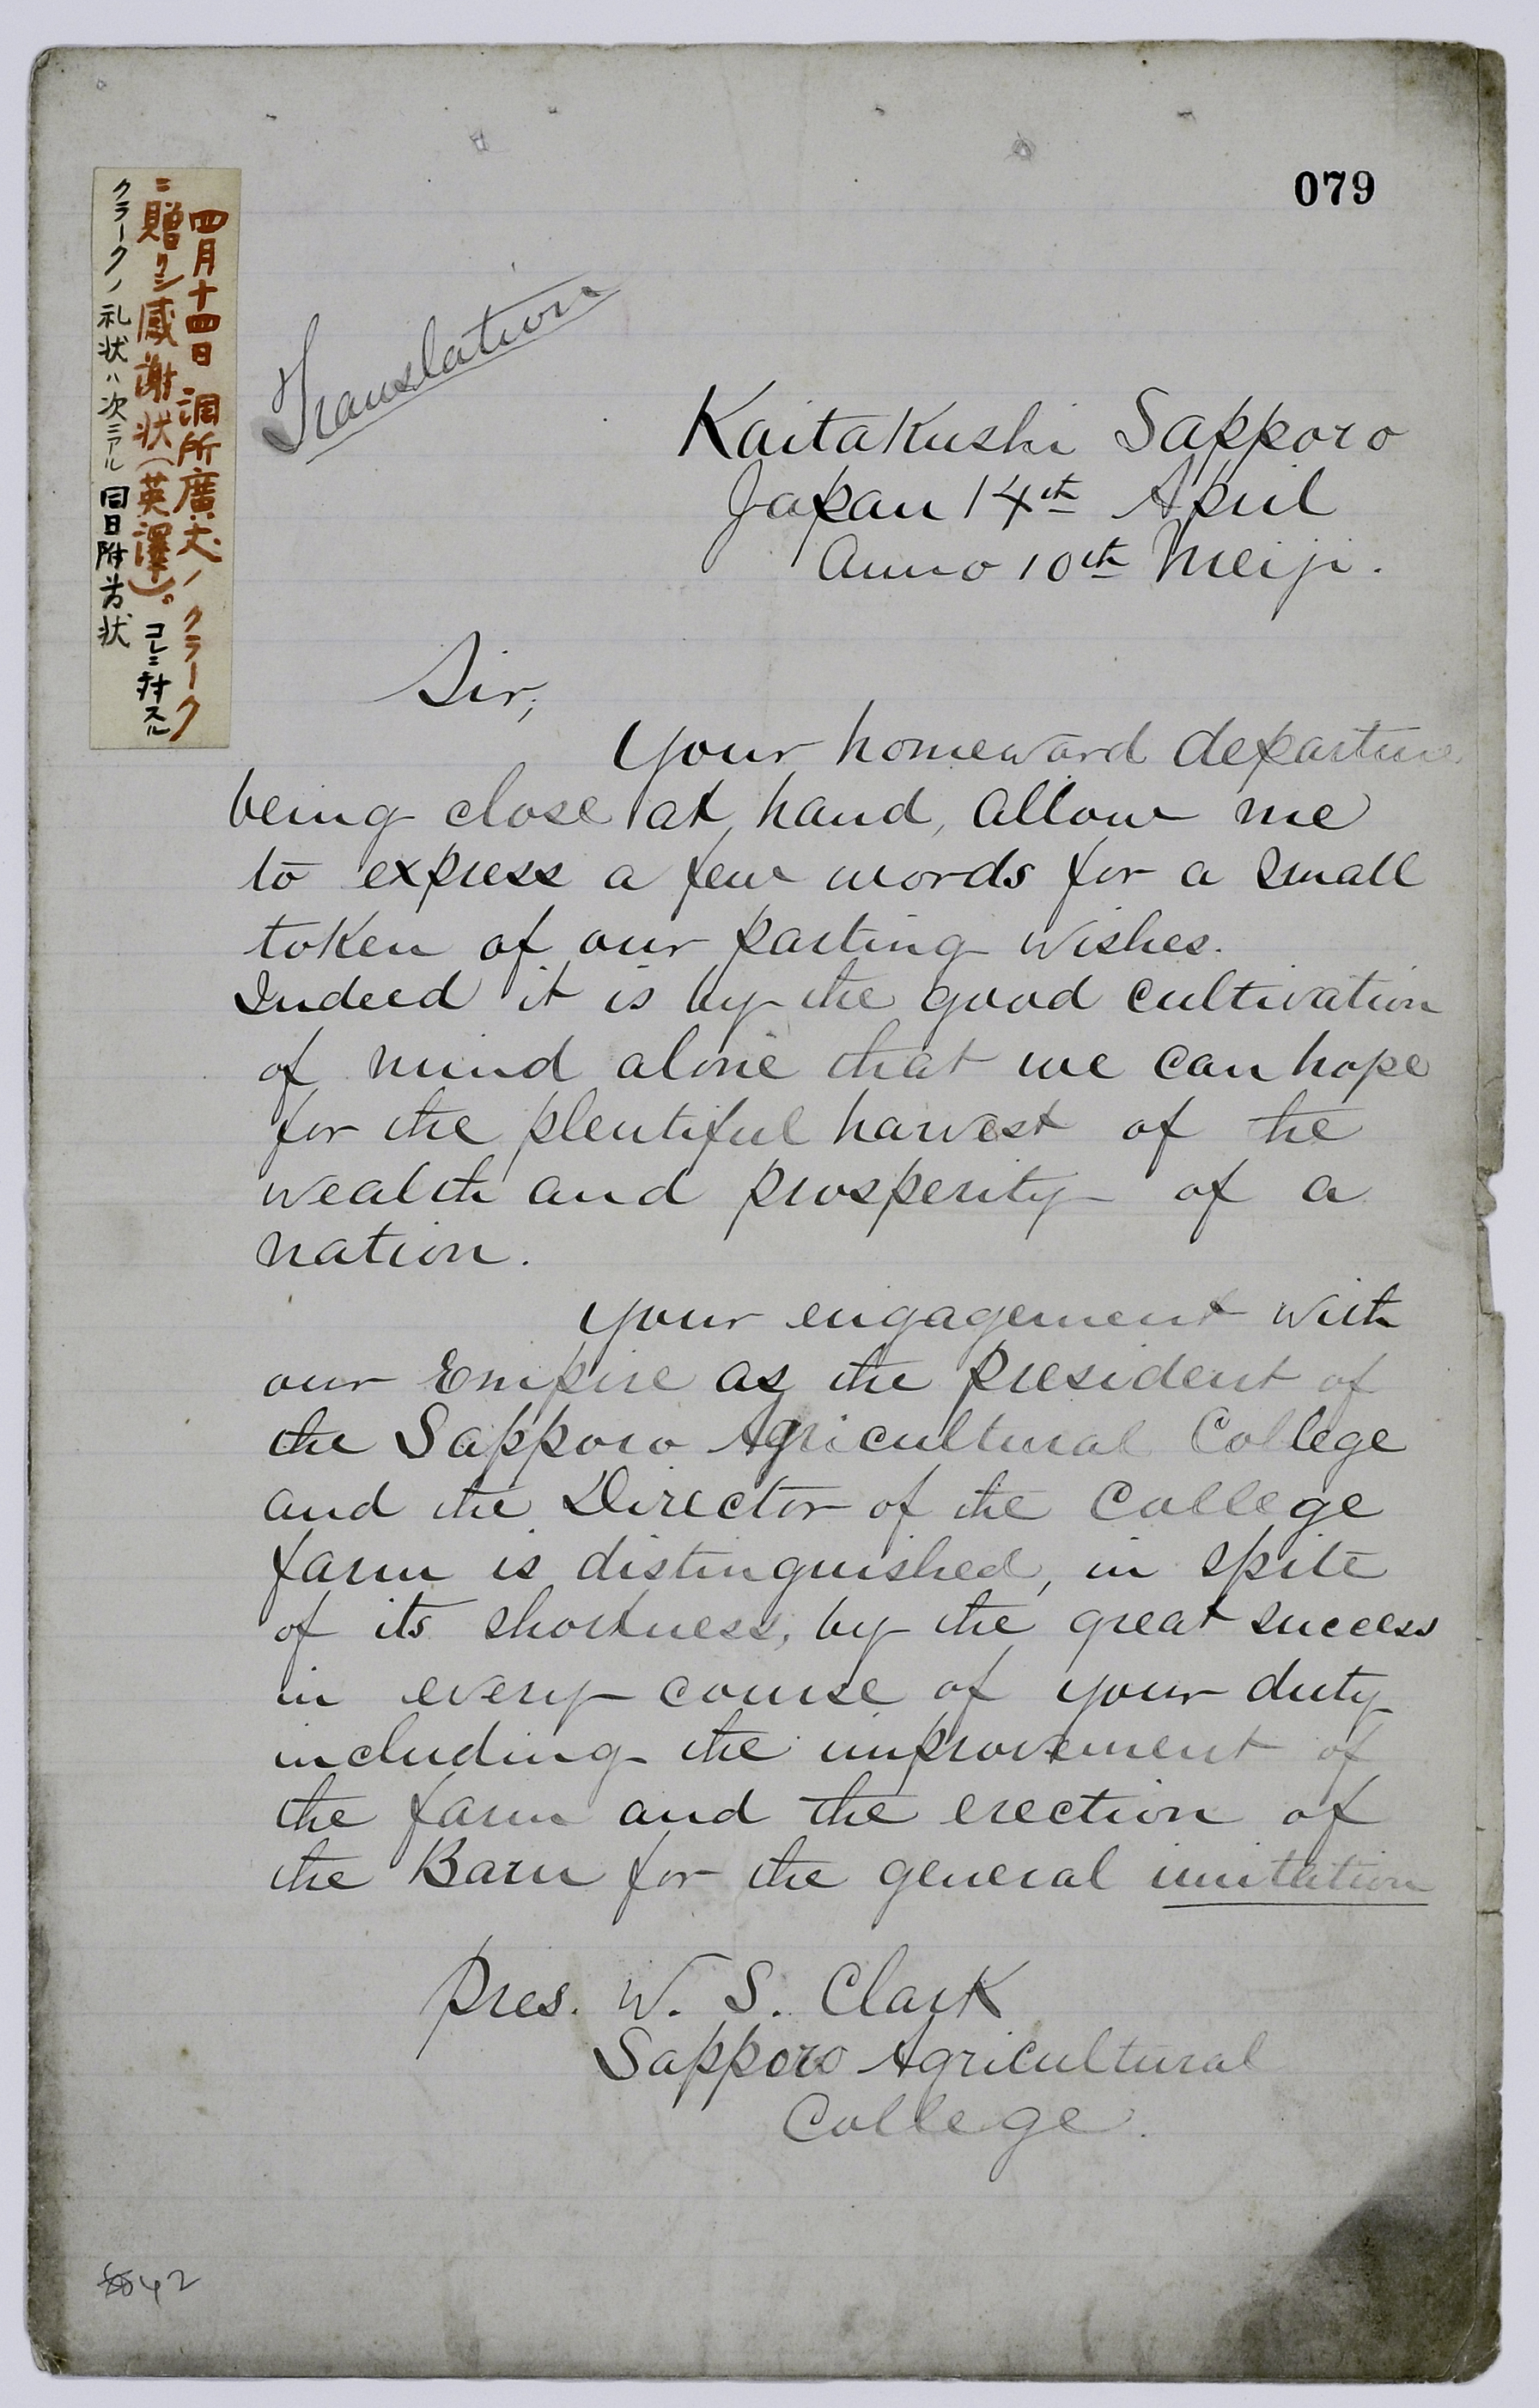 079
四月十四日 調所廣丈ノクラーク
ニ贈リシ感謝状(英譯)。コレニ対スル
クラークノ礼状ハ次ニアル 同日附
Translation
Kaitakushi Sapporo
Japan 14th April
Anno 10th Meiji.
Sir,
Your homeward departure
being close at hand, allow me
to express a few words for a small
token of our parting wishes.
Indeed it is by the good cultivation
of mind alone that we can hope
for the plentiful harvest of the
wealth and prosperity of a
nation.
Your engagement with
our Empire as the president of
the Sapporo Agricultural College
and the Director of the College
farm is distinguished, in spite
of its shortness, by the great success
in every course of your duty
including the improvement of
the farm and the erection of
the Barn for the general imitation
Pres. W. S. Clark
Sapporo Agricultural
College.
42